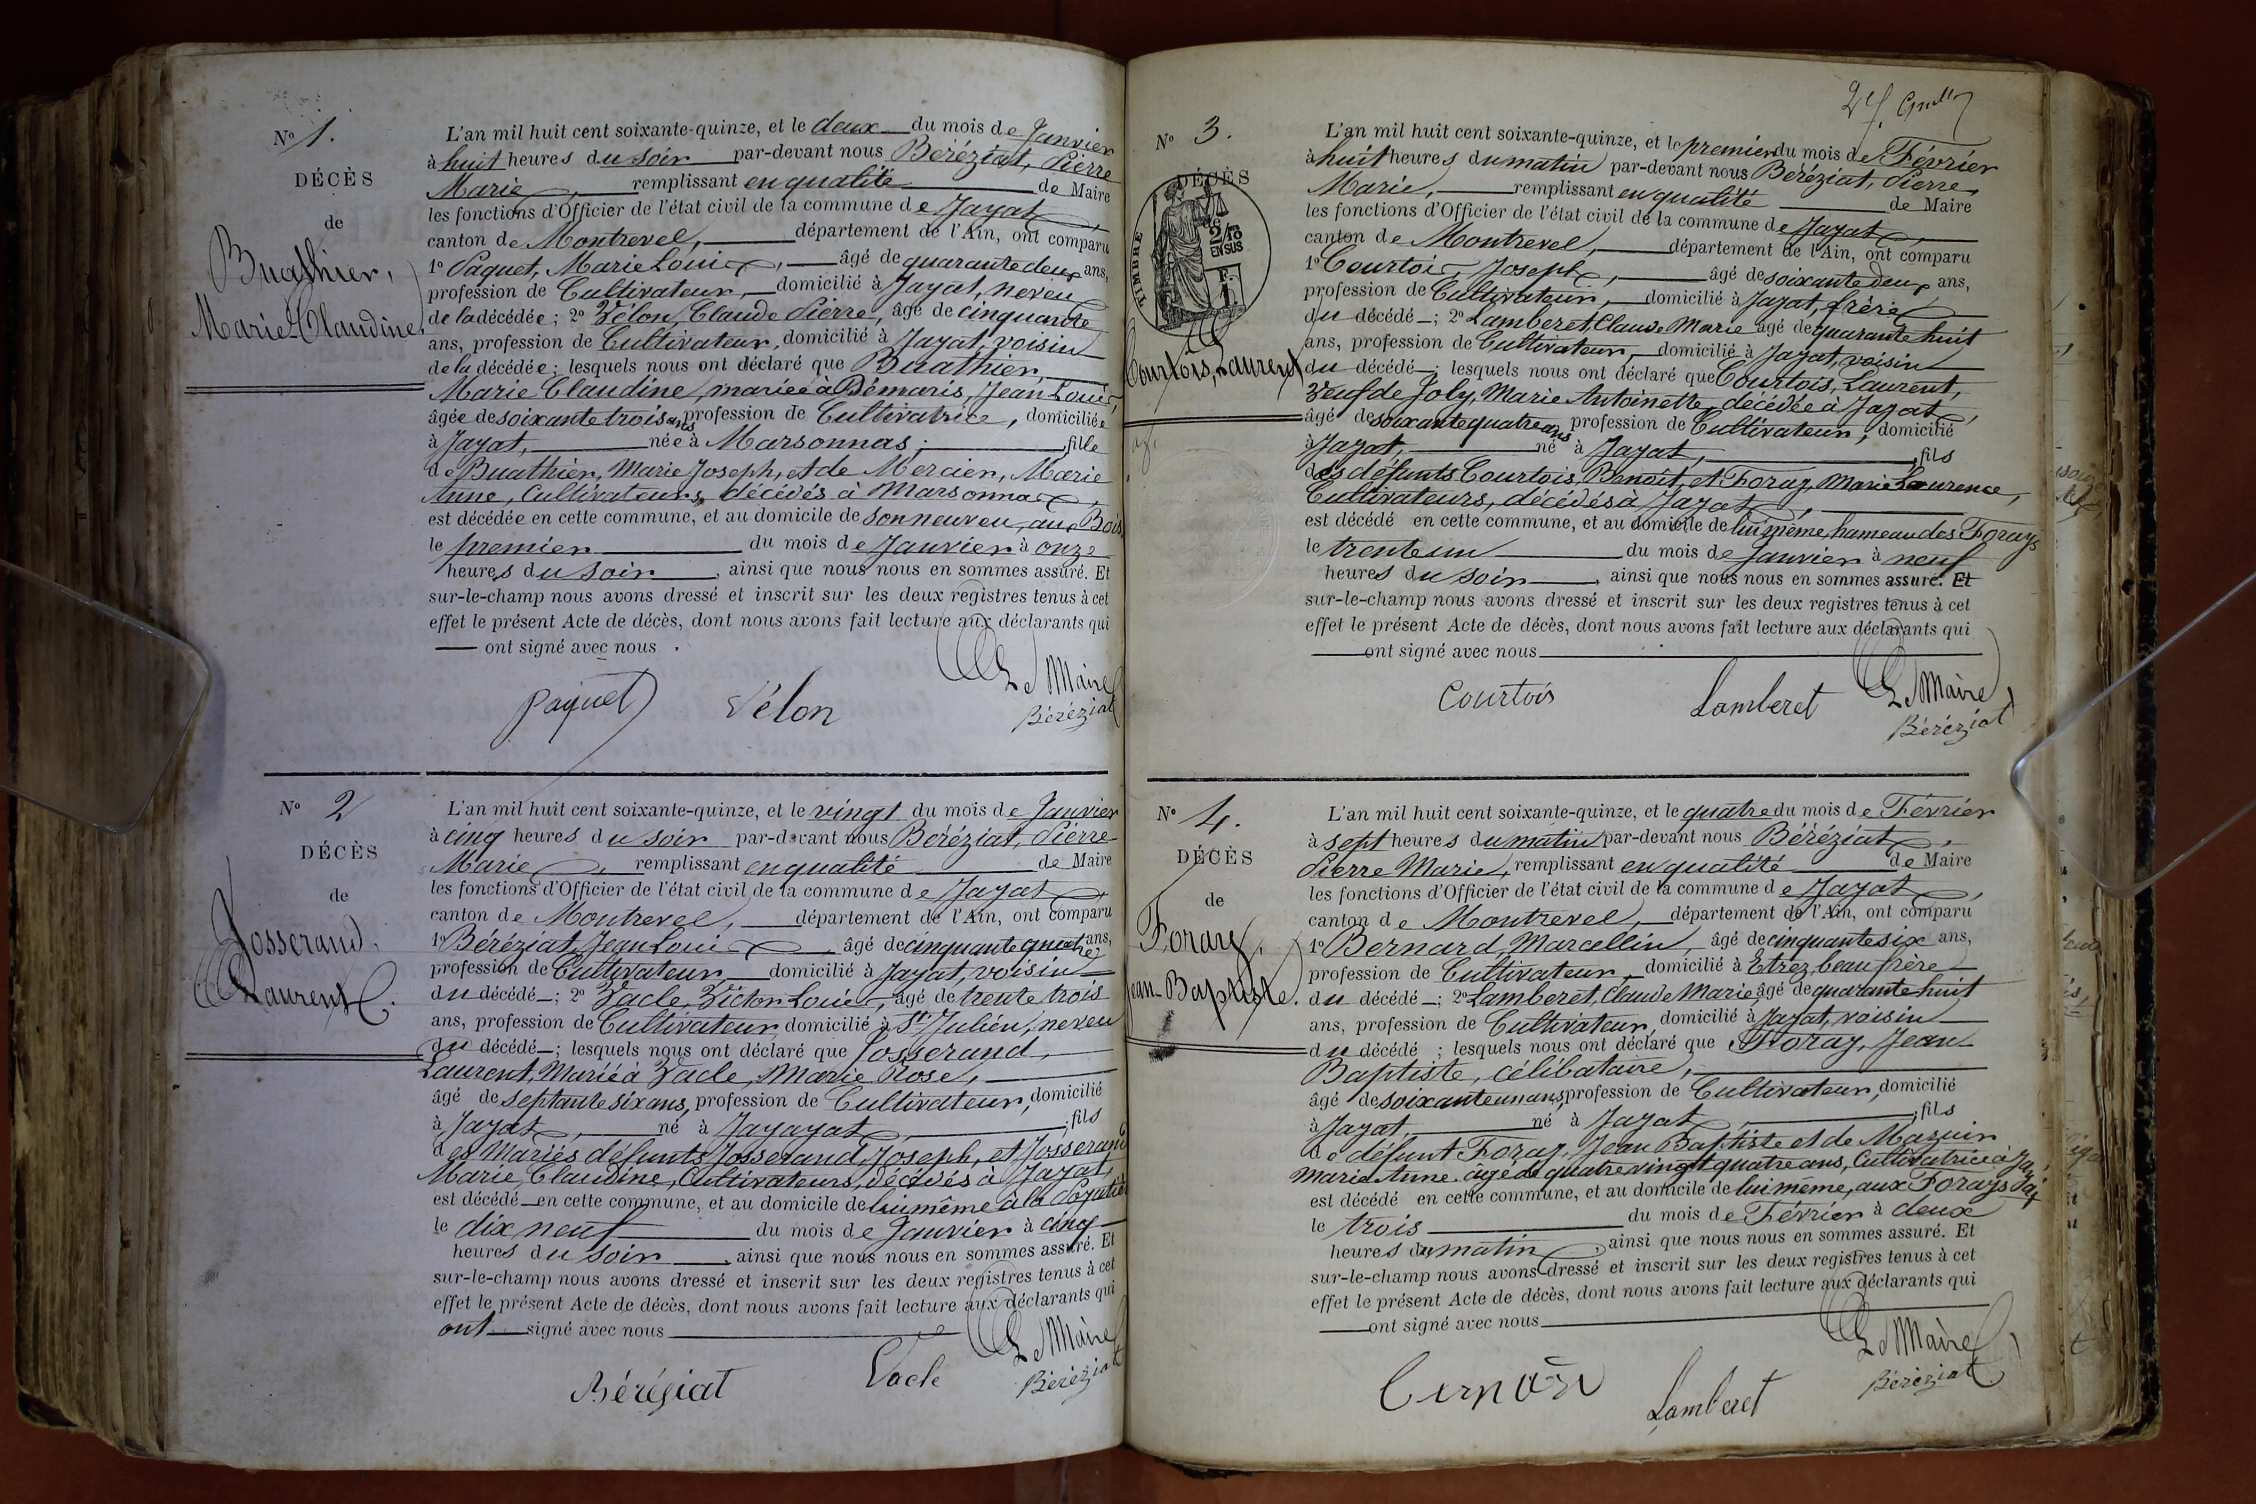 N° 1.
DÉCÈS
de
Buathier,
Marie Claudine
L'an mil huit cent soixante-quinze, et le deux du mois de Janvier
à huit heures du soir par-devant nous Béréziat, Pierre
Marie, remplissant en qualité de Maire
les fonctions d'Officier de l'état civil de la commune de Jayat,
canton de Montrevel, département de l'Ain, ont comparu
1° Paquet, Marie Louis, âgé de quarante deux ans,
profession de Cultivateur, domicilié à Jayat, neveu
de la décédée; 2° Vélon, Claude Pierre, âgé de cinquante
ans, profession de Cultivateur, domicilié à Jayat, voisin
de la décédée; lesquels nous ont déclaré que Buathier,
Marie Claudine, mariée à Démaris, Jean Louis,
âgée de soixante trois ans profession de Cultivatrice, domiciliée
à Jayat, née à Marsonnas; fille
de Buathier, Marie Joseph, et de Mercier, Marie
Anne, Cultivateurs, décédés à Marsonnas,
est décédée en cette commune, et au domicile de son neuveu, aux Bois,
le premier du mois de Janvier à onze
heures du soir, ainsi que nous nous en sommes assuré. Et
sur-le-champ nous avons dressé et inscrit sur les deux registres tenus à cet
effet le présent Acte de décès, dont nous avons fait lecture aux déclarants qui
ont signé avec nous.
Paquet Vélon Le Maire
Béréziat
N° 2
DÉCÈS
de
Josserand,
Laurent.
L'an mil huit cent soixante-quinze, et le vingt du mois de Janvier
à cinq heures du soir par-devant nous Béréziat, Pierre
Marie, remplissant en qualité de Maire
les fonctions d'Officier de l'état civil de la commune de Jayat,
canton de Montrevel, département de l'Ain, ont comparu
1° Béréziat, Jean Louis âgé de cinquante quatre ans,
profession de Cultivateur domicilié à Jayat, voisin
du décédé; 2° Vacle, Victor Louis, âgé de trente trois
ans, profession de Cultivateur, domicilié à St Julien, neveu
du décédé; lesquels nous ont déclaré que Josserand,
Laurent, Marié à Vacle, Marie Rose,
âgé de septante six ans, profession de Cultivateur, domicilié
à Jayat, né à Jayayat, ; fils
des Mariés défunts Josserand, Joseph, et Josserand
Marie Claudine, Cultivateurs, décédés à Jayat,
est décédé en cette commune, et au domicile de lui même à la
le dix neuf du mois de Janvier à cinq
heures du soir, ainsi que nous nous en sommes assuré. Et
sur-le-champ nous avons dressé et inscrit sur les deux registres tenus à cet
effet le présent Acte de décès, dont nous avons fait lecture aux déclarants qui
ont signé avec nous
Béréziat Vacle Le Maire
Béréziat
27.
N° 3.
DÉCÈS
de
TIMBRE
2/10
EN SUS
F.
1
Courtois, Laurent
L'an mil huit cent soixante-quinze, et le premier du mois de Février
à huit heures du matin par-devant nous Béréziat, Pierre
Marie, remplissant en qualité de Maire
les fonctions d'Officier de l'état civil de la commune de Jayat,
canton de Montrevel, département de l'Ain, ont comparu
1° Courtois, Joseph, âgé de soixante deux ans,
profession de Cultivateur, domicilié à Jayat, frère
du décédé; 2° Lamberet, Claude Marie âgé de quarante huit
ans, profession de Cultivateur, domicilié à Jayat, voisin
du décédé; lesquels nous ont déclaré que Courtois, Laurent,
Veuf de Joly, Marie Antoinette décédée à Jayat,
âgé de soixante quatre ans profession de Cultivateur, domicilié
à Jayat, né à Jayat, ; fils
des défunts Courtois, Benoît, et Foray, Marie Laurence,
Cultivateurs, décédés à Jayat,
est décédé en cette commune, et au domicile de lui même, hameau des Forays
le trente un du mois de Janvier à neuf
heures du soir, ainsi que nous nous en sommes assuré. Et
sur-le-champ nous avons dressé et inscrit sur les deux registres tenus à cet
effet le présent Acte de décès, dont nous avons fait lecture aux déclarants qui
ont signé avec nous
Courtois Lamberet Le Maire
Béréziat
N° 4.
DÉCÈS
de
Foray,
Jean-Baptiste.
L'an mil huit cent soixante-quinze, et le quatre du mois de Février
à sept heures du matin par-devant nous Béréziat,
Pierre Marie, remplissant en qualité de Maire
les fonctions d'Officier de l'état civil de la commune de Jayat,
canton de Montrevel, département de l'Ain, ont comparu
1° Bernard, Marcellin, âgé de cinquante six ans,
profession de Cultivateur, domicilié à Etrez, beau frère
du décédé; 2° Lamberet, Claude Marie, âgé de quarante huit
ans, profession de Cultivateur, domicilié à Jayat, voisin
du décédé; lesquels nous ont déclaré que Foray, Jean
Baptiste, célibataire,
âgé de soixante un ans, profession de Cultivateur, domicilié
à Jayat né à Jayat ; fils
de défunt Foray, Jean Baptiste et de Mazuir
Marie Anne âgée de quatre vingt quatre ans, Cultivatrice à Jayat
est décédé en cette commune, et au domicile de lui même, aux Forays
le trois du mois de Février à deux
heures du matin, ainsi que nous nous en sommes assuré. Et
sur-le-champ nous avons dressé et inscrit sur les deux registres tenus à cet
effet le présent Acte de décès, dont nous avons fait lecture aux déclarants qui
ont signé avec nous
Lamberet Le Maire
Béréziat